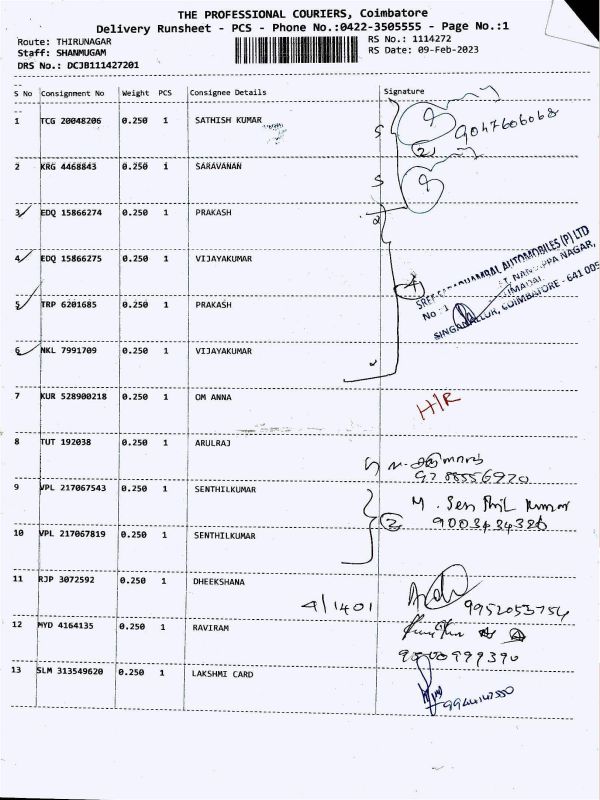 THE PROFESSIONAL COURIERS, Coimbatore
Delivery Runsheet - PCS - Phone No.:0422-3505555 - Page No.:1
Route: THIRUNAGAR
RS No.: 1114272
Staff: SHANMUGAM
RS Date: 09-Feb-2023
DRS No.: DCJB111427201
S No Consignment No Weight PCS Consignee Details Signature
1 TCG 20048206 0.250 1 SATHISH KUMAR
9047606068
2
2 KRG 4468843 0.250 1 SARAVANAN
3 EDQ 15866274 0.250 1 PRAKASH
4 EDQ 15866275 0.250 1 VIJAYAKUMAR
4
AUTOMOBILES (P) LTD
SINGANALLUR, COIMBATORE - 641 005
5 TRP 6201685 0.250 1 PRAKASH
6 NKL 7991709 0.250 1 VIJAYAKUMAR
7 KUR 528900218 0.250 1 OM ANNA
H/R
8 TUT 192038 0.250 1 ARULRAJ
9 VPL 217067543 0.250 1 SENTHILKUMAR
M. Senthil Kumar
2
10 VPL 217067819 0.250 1 SENTHILKUMAR
11 RJP 3072592 0.250 1 DHEEKSHANA
4/1401
9952053754
12 MYD 4164135 0.250 1 RAVIRAM
13 SLM 313549620 0.250 1 LAKSHMI CARD